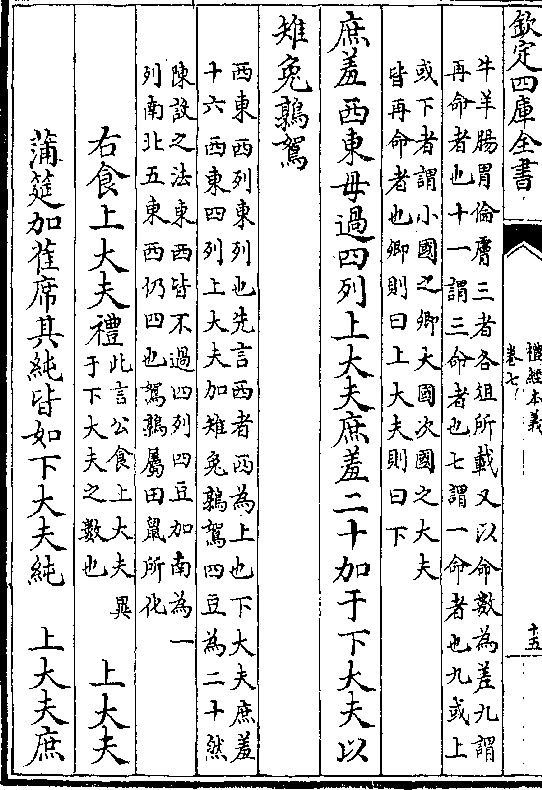 欽定四庫全書
禮經本義
卷七
十五
牛羊腸胃倫膚三者各俎所載又以命數為差九謂
再命者也十一謂三命者也七謂一命者也九或上
或下者謂小國之卿大國次國之大夫
皆再命者也卿則曰上大夫則曰下
庶羞西東毋過四列上大夫庶羞二十加于下大夫以
雉兔鶉鴽
西東西列東列也先言西者西為上也下大夫庶羞
十六西東四列上大夫加雉兔鶉鴽四豆為二十然
陳設之法東西皆不過四列四豆加南為一
列南北五東西仍四也鴽鶉屬田鼠所化
右食上大夫禮
此言公食上大夫異
于下大夫之數也
上大夫
蒲筵加萑席其純皆如下大夫純
上大夫庶